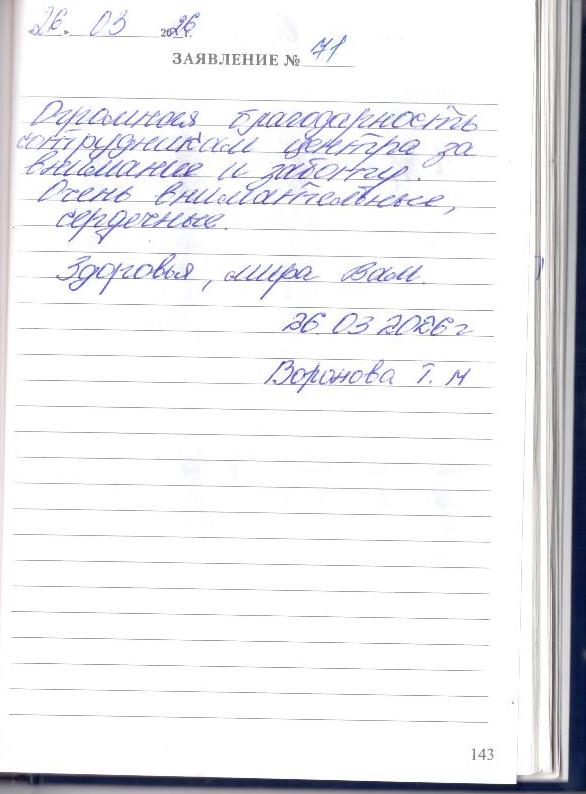 26. 03 2026 г.
ЗАЯВЛЕНИЕ № 71
Огромная благодарность
сотрудникам центра за
внимание и заботу.
Очень внимательные,
сердечные.
Здоровья, мира Вам.
26 03 2026 г
Воронова Т. М
143